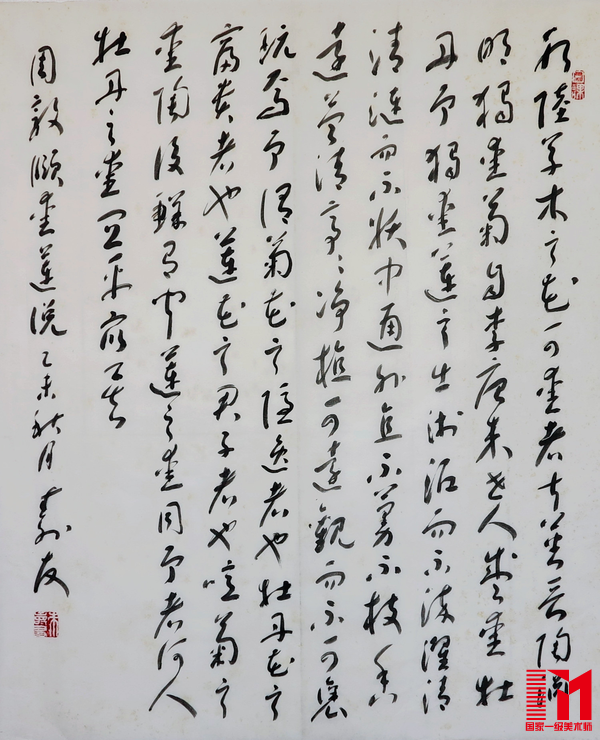 水陸草木之花可愛者甚蕃晋陶渊
明獨愛菊自李唐来世人盛愛牡
丹予獨愛蓮之出淤泥而不染濯清
清漣而不妖中通外直不蔓不枝香
遠益清亭々净植可遠觀而不可亵
玩焉予谓菊花之隐逸者也牡丹花之
富贵者也蓮花之君子者也噫菊之
愛陶後鲜有闻蓮之愛同予者何人
牡丹之愛宜乎众矣
周敦颐愛蓮说乙未秋月友
国家一级美术师